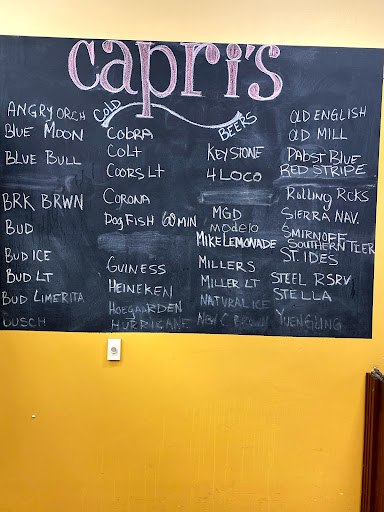 capri's
COLD BEERS
ANGRY ORCH
BLUE MOON
BLUE BULL
BRK BRWN
BUD
BUD ICE
BUD LT
BUD LIMERITA
BUSCH
COBRA
COLT
COORS LT
CORONA
DOGFISH 60 MIN
GUINESS
HEINEKEN
HOEGAARDEN
HURRICANE
KEYSTONE
4 LOCO
MGD
MODELO
MIKE LEMONADE
MILLERS
MILLER LT
NATURAL ICE
NEW C BROWN
OLD ENGLISH
OLD MILL
PABST BLUE
RED STRIPE
ROLLING RCKS
SIERRA NAV.
SMIRNOFF
SOUTHERN TIER
ST. IDES
STEEL RSRV
STELLA
YUENGLING